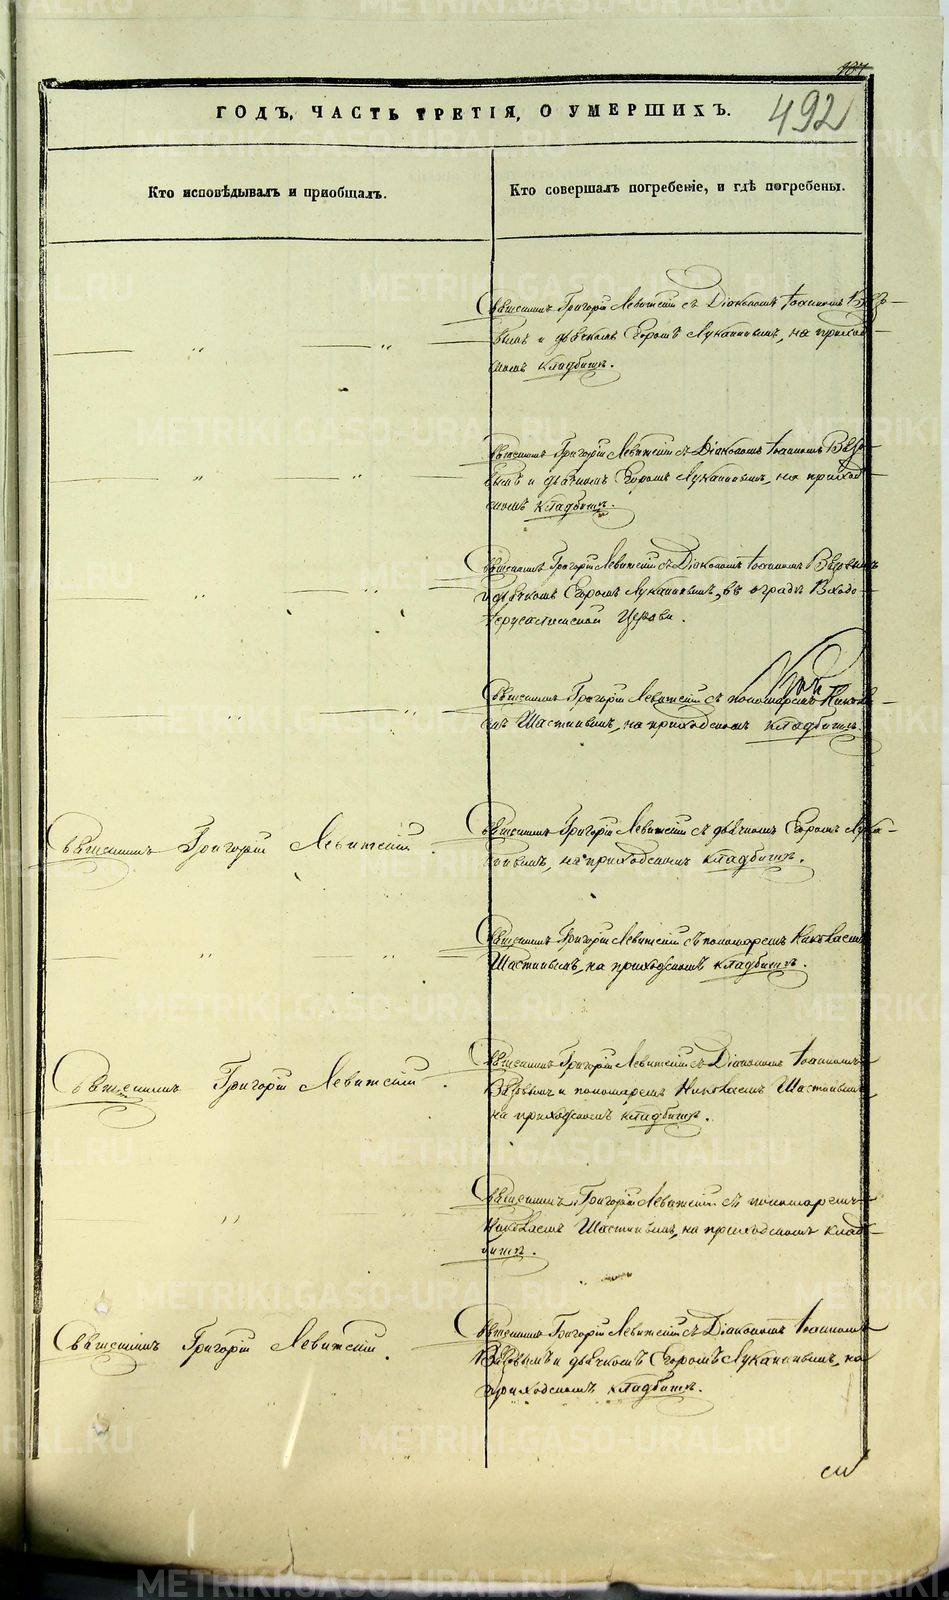 ГОДЪ, ЧАСТЬ ТРЕТІЯ, О УМЕРШИХЪ.
492
Кто исповѣдывалъ и пріобщалъ.
Кто совершалъ погребеніе, и гдѣ погребены.
Священникъ Григорій Левитскій съ Діакономъ Іоанномъ
и дьячкомъ Егоромъ Луканинымъ, на приход-
скомъ кладбищѣ.
Священникъ Григорій Левитскій съ Діакономъ Іоанномъ
и дьячкомъ Егоромъ Луканинымъ, на приход-
скомъ кладбищѣ.
Священникъ Григорій Левитскій съ Діакономъ Іоанномъ
и дьячкомъ Егоромъ Луканинымъ, въ оградѣ Входо-
Іерусалимской Церкви.
Священникъ Григорій Левитскій съ пономаремъ Никола-
емъ на приходскомъ кладбищѣ.
Священникъ Григорій Левитскій.
Священникъ Григорій Левитскій съ дьячкомъ Егоромъ Лука-
нинымъ, на приходскомъ кладбищѣ.
Священникъ Григорій Левитскій съ пономаремъ Николаемъ
на приходскомъ кладбищѣ.
Священникъ Григорій Левитскій.
Священникъ Григорій Левитскій съ Діакономъ Іоанномъ
и пономаремъ Николаемъ
на приходскомъ кладбищѣ.
Священникъ Григорій Левитскій съ пономаремъ
Николаемъ на приходскомъ клад-
бищѣ.
Священникъ Григорій Левитскій.
Священникъ Григорій Левитскій съ Діакономъ Іоанномъ
и дьячкомъ Егоромъ Луканинымъ, на
приходскомъ кладбищѣ.
METRIKI.GASO-URAL.RU